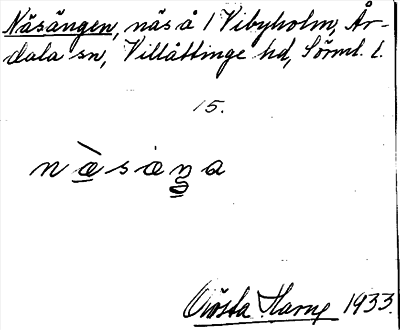 Näsängen, näs å / Vibyholm, År-
dala sn, Villåttinge hd, Sörml. l.
15.
nàsaŋa
Gösta Harne 1933.